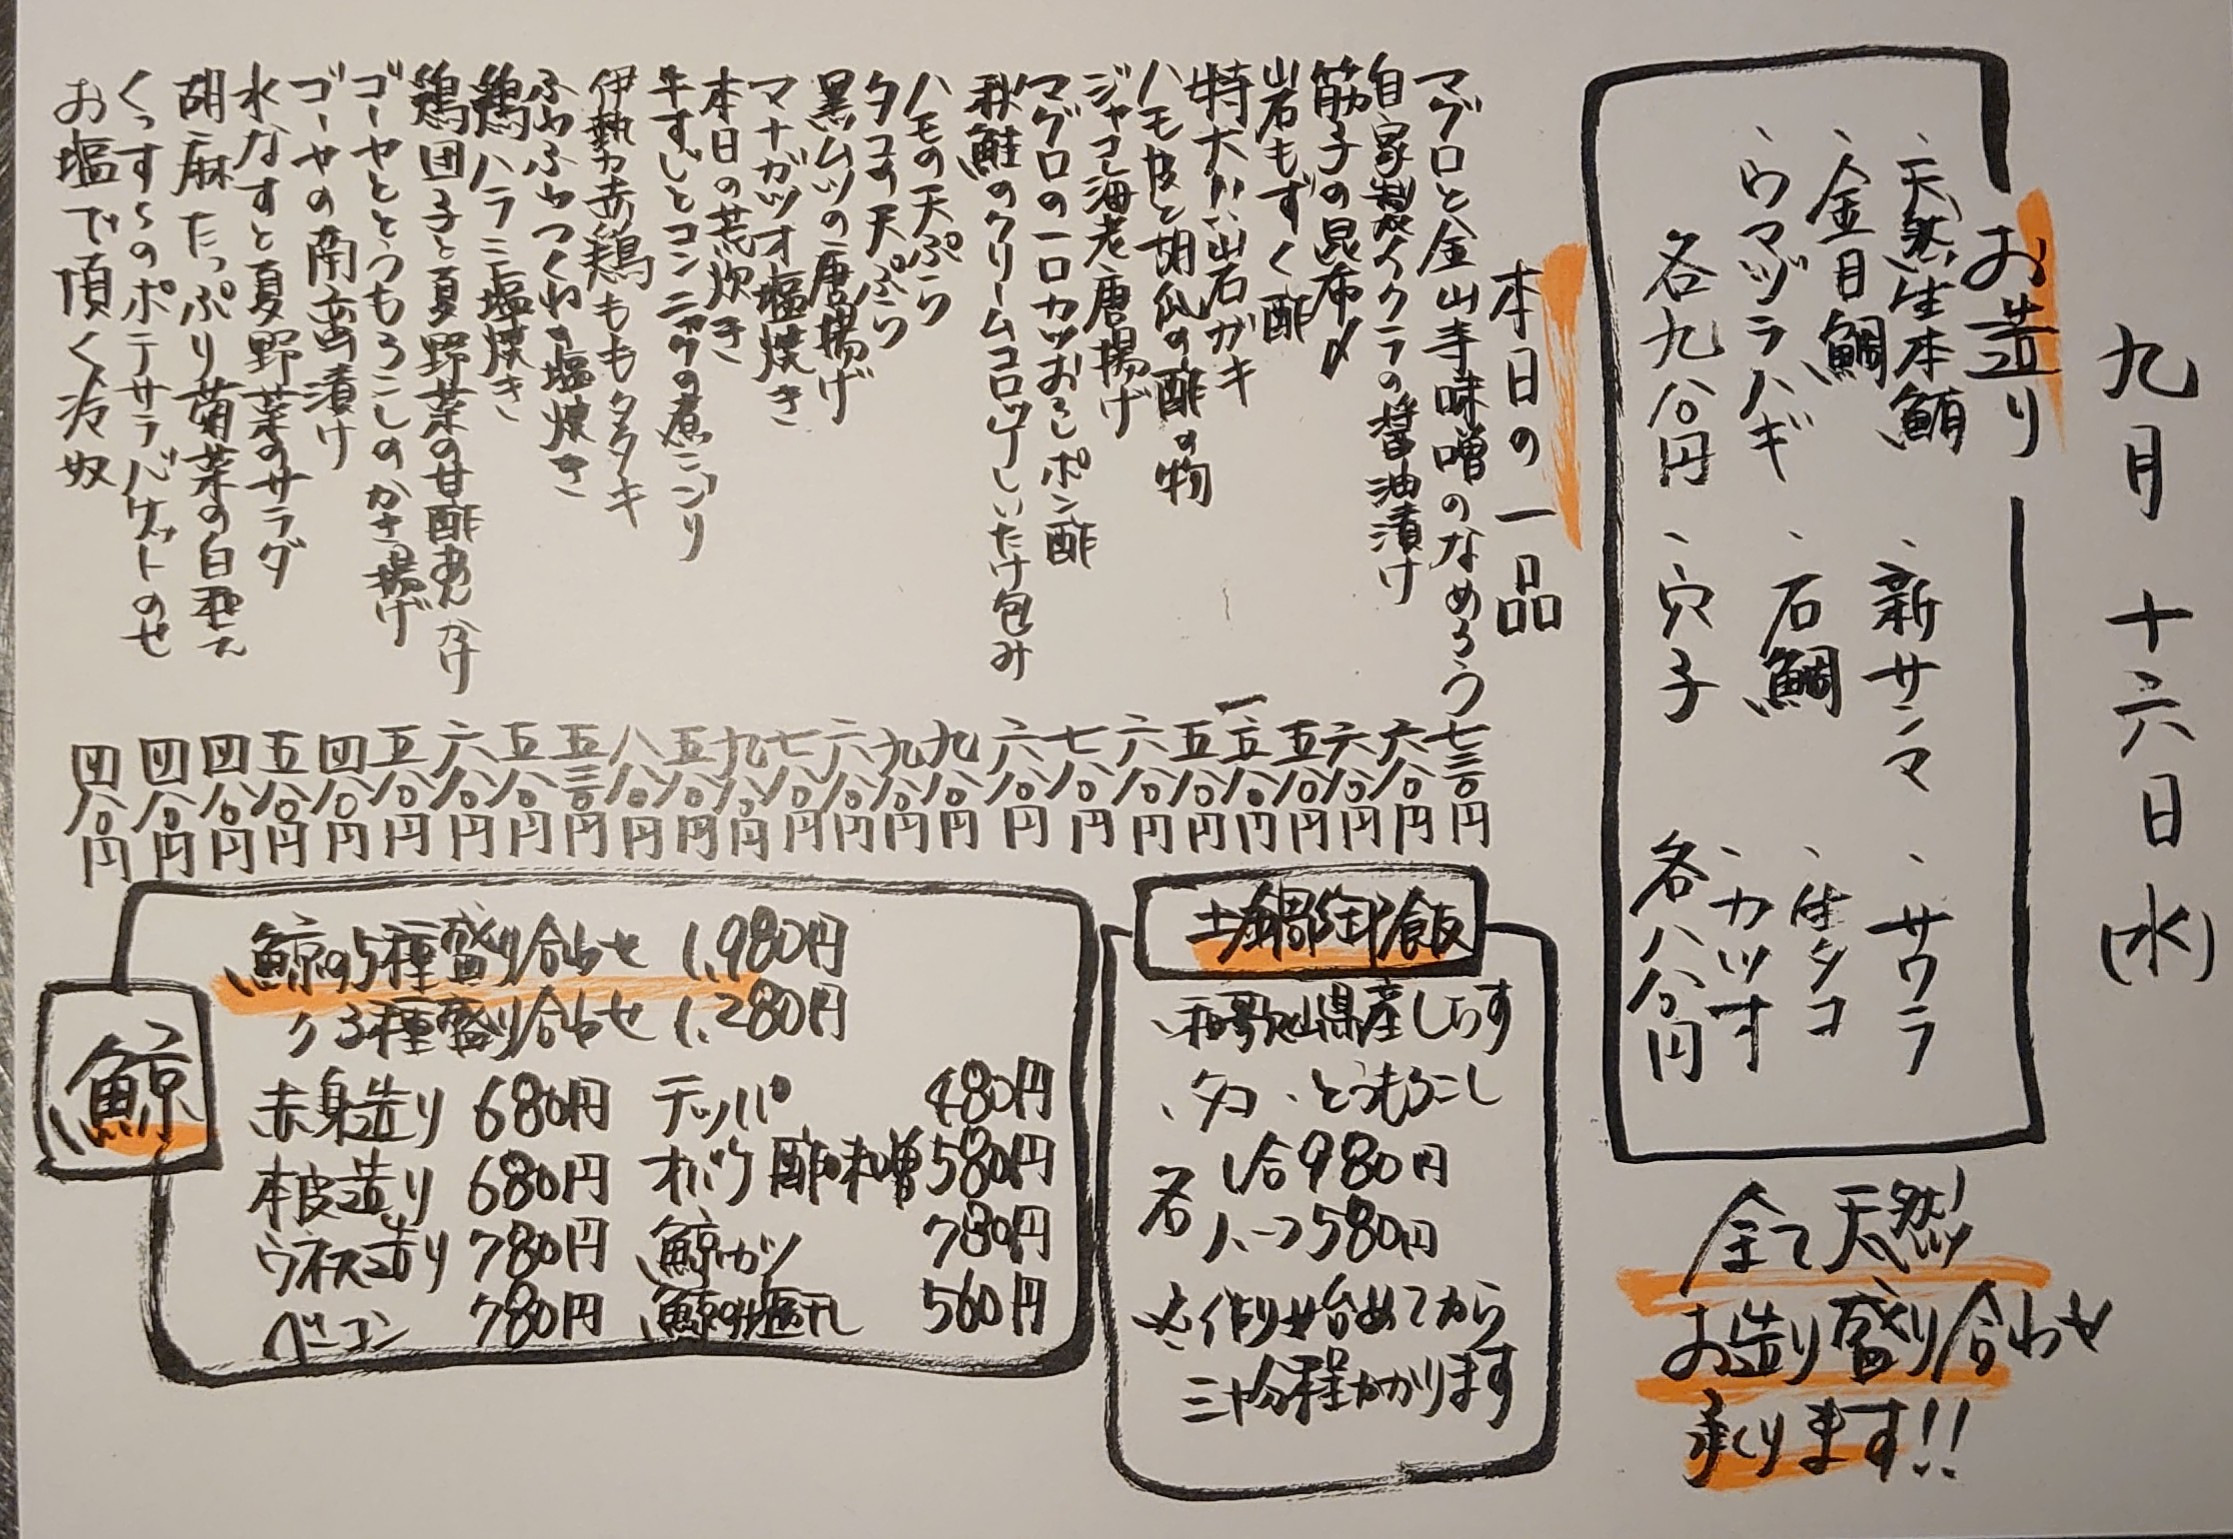 九月十六日(水)
お造り
、天然生本鮪
、金目鯛
、ウマヅラハギ
各九八〇円
、新サンマ
、石鯛
、穴子
、サワラ
、生タコ
、カツオ
各八八〇円
全て天然
お造り盛り合わせ
承ります!!
本日の一品
マグロと金山寺味噌のなめろう 七三〇円
自家製イクラの醤油漬け 六八〇円
筋子の昆布〆 六八〇円
岩もずく酢 五八〇円
特大 岩ガキ 一、五八〇円
ハモ皮と胡瓜の酢の物 五八〇円
ジャコ海老唐揚げ 六八〇円
マグロの一口カツおろしポン酢 七八〇円
秋鮭のクリームコロッケしいたけ包み 六八〇円
ハモの天ぷら 九八〇円
タコの天ぷら 九八〇円
黒ムツの唐揚げ 六八〇円
マナガツオ塩焼き 七八〇円
本日の荒炊き 九八〇円
牛すじとコンニャクの煮こごり 五八〇円
伊勢赤鶏ももタタキ 八八〇円
ふわふわつくね塩焼き 五三〇円
鶏ハラミ塩焼き 五八〇円
鶏団子と夏野菜の甘酢あんかけ 六八〇円
ゴーヤととうもろこしのかき揚げ 五八〇円
ゴーヤの南蛮漬け 四八〇円
水なすと夏野菜のサラダ 五八〇円
胡麻たっぷり菊菜の白和え 四八〇円
くっすらのポテサラバゲットのせ 四八〇円
お塩で頂く冷奴 四八〇円
土鍋御飯
、和歌山県産しらす
、タコ 、とうもろこし
各 1合980円
ハーフ580円
※作り始めてから
三十分程かかります
鯨
鯨の5種盛り合わせ 1,980円
〃 3種盛り合わせ 1,280円
赤身造り 680円
本皮造り 680円
ウネス造り 780円
ベーコン 780円
テッパ 480円
オバケ酢味噌 580円
鯨カツ 780円
鯨の塩干し 560円